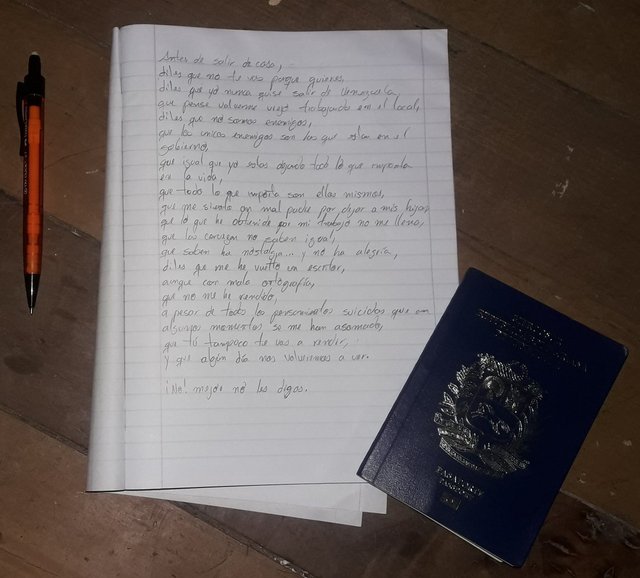 Antes de salir de casa,
diles que no te vas porque quieres,
diles que yo nunca quise salir de Venezuela,
que pensé volverme viejo trabajando en el local,
diles que no somos enemigos,
que los unicos enemigos son los que estan en el
gobierno,
que igual que yo estas dejando todo lo que importa
en la vida,
que todo lo que importa son ellas mismas,
que me siento un mal padre por dejar a mis hijas,
que lo que he obtenido por mi trabajo no me llena,
que las no saben igual,
que saben ha nostalgia... y no ha alegría,
diles que me he vuelto un escritor,
aunque con mala ortografía,
que no me he rendido,
a pesar de todos los pensamientos suicidas que en
algunos momentos se me han asomado,
que tú tampoco te vas a rendir,
y que algún día nos volveremos a ver.
¡No! mejor no les digas.
PASAPORTE